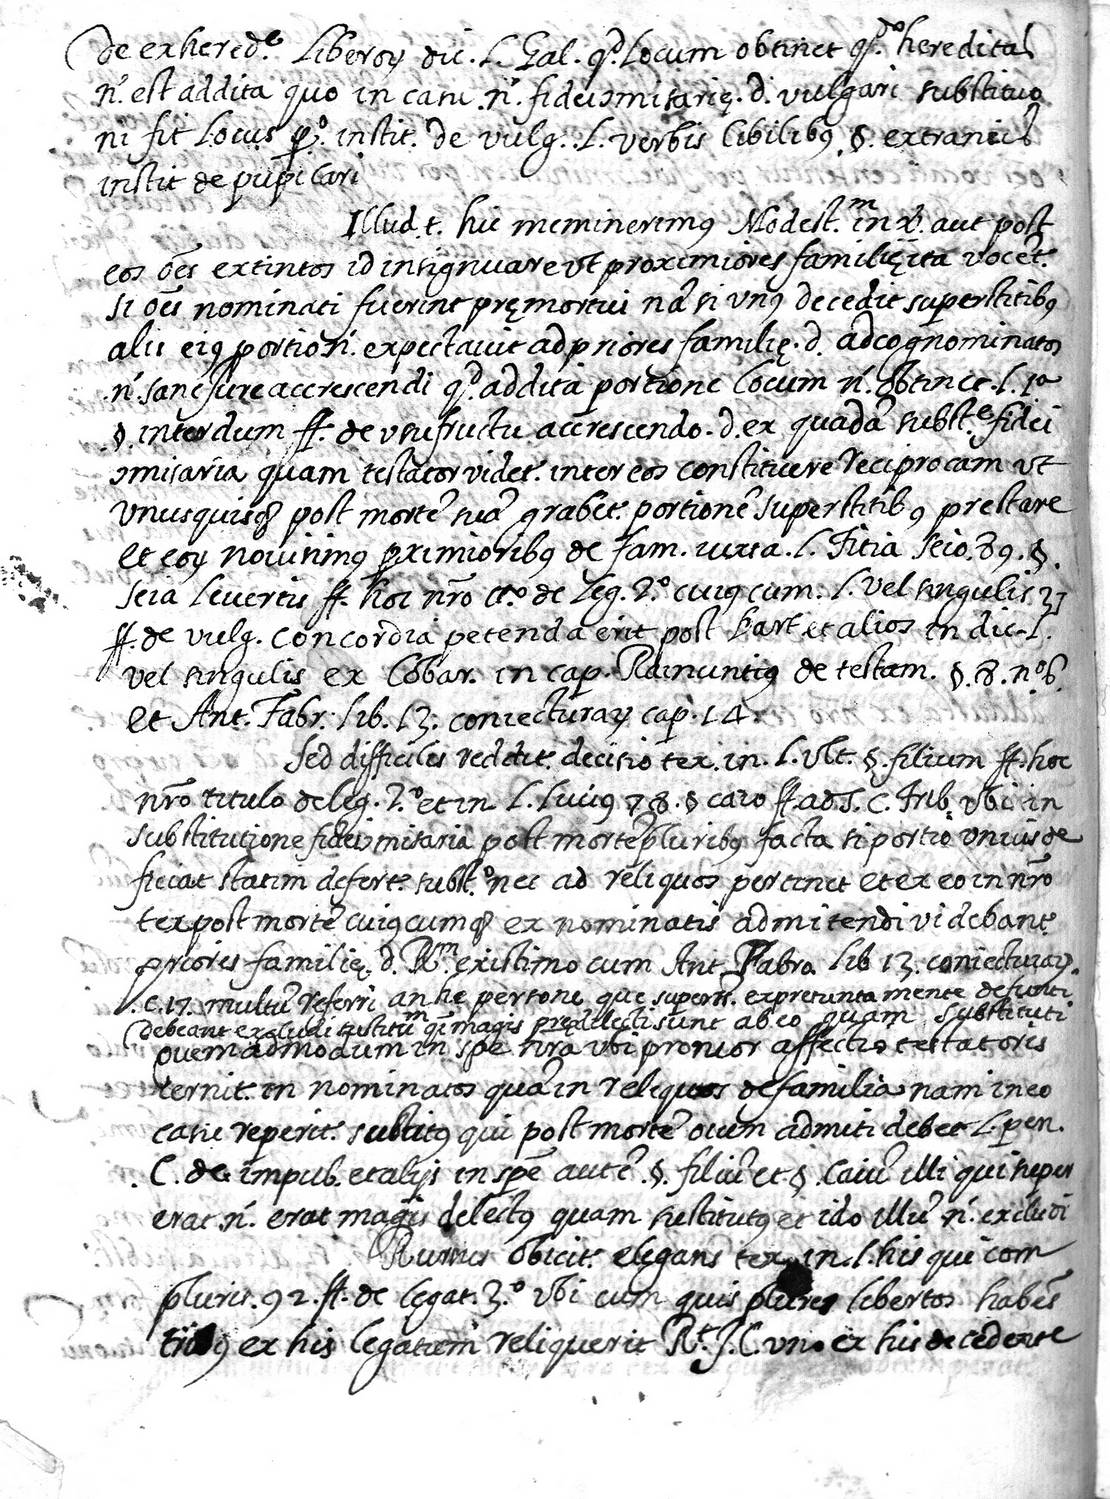 de exhered.e Liberoy dic. L. Gal. q.d Locum obtinet q.do hereditas
n. est addita quo in casu n. fideiↄmisarię. d. vulgari substituo
ni fit Locus p.o instit. de vulg. L. verbis Cibilibꝰ §. extraneis
instit de pupilari
Illud. t. hic meminerimꝰ Modest.m in aut post
eos oēs extintos id insignuare vt proximiores familię ita vocet.
Si oēs nominati fuerint pręmortui nā si vnꝰ decedit superstitibꝰ
aliis eiꝰ portio n. expectavit ad priores familię. d. ad cognominatos
n. sane Jure accrescendi q.d addita portione Locum n. obtinet. L. 1a
§. interdum ff. de vsufructu accrescendo. d. ex quadā subst.e fidei
ↄmisaria quam testator videt. inter eos constituere reciprocam vt
vnusquisq post mortē suā grabet. portionē superstitibꝰ prestare
et eoy novisimꝰ proximioribꝰ de fam. iuxta. L. Titia Seio. 89. §.
Seia Levertis ff. hoc nro tt.o de Leg. 2.o cuiꝰ cum. L. vel singulis 37
ff. de vulg. concordia petenda erit post Bart et alios in dic. L.
vel singulis ex Cobar. in cap. Rainuntiꝰ de testam. §. 8. n.o 6.
et Ant. Fabr. Lib. 13. coniecturay cap. 14.
Sed difficilis reddit. decisio tex. in. L. vlt. §. filium ff. hoc
nro titulo de leg. 2.o et in L. Luciꝰ 78. § caio ff ad S. C. Treb. vbi in
substitutione fideiↄmisaria post mortē pluribꝰ facta si portio vnius de
ficiat statim defert. subst.o nec ad reliquos pertinet et ex eo in nro
tex post mortē cuiꝰcumq ex nominatis admitendi videbant.
priores familię. d. R.m existimo cum Ant. Fabro Lib 13. coniecturay.
. c. 17. multū referri an he persone que supers. expresunta mente defunti
debeant excludi restitu.m q magis predilecti sunt ab eo quam substituti
quemadmodum in spe nra vbi pronior affectio testatoris
cernit. in nominatos quā in reliquos de familia nam in eo
casu reperit. substitꝰ qui post mortē oium admiti debet L. pen.
C. de impub. et alijs in spē autē §. filiū et §. Caiū illi qui super
erat n. erat magis delectꝰ quam sustitutꝰ et ido illū n. excludi
Rursus obicit. elegans tex in. L. his qui com
pluris. 92. ff. de Legat. 3.o vbi cum quis plures libertos habēs
ex his Legatum reliquerit R.t J. C vno ex his decedente